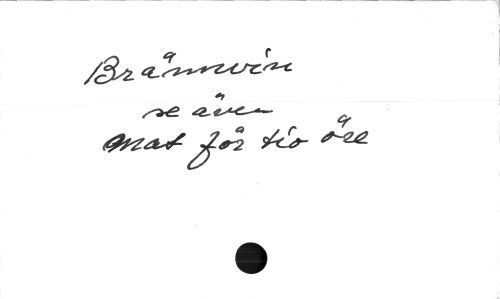 Brännvin
se även
Mat för tio öre